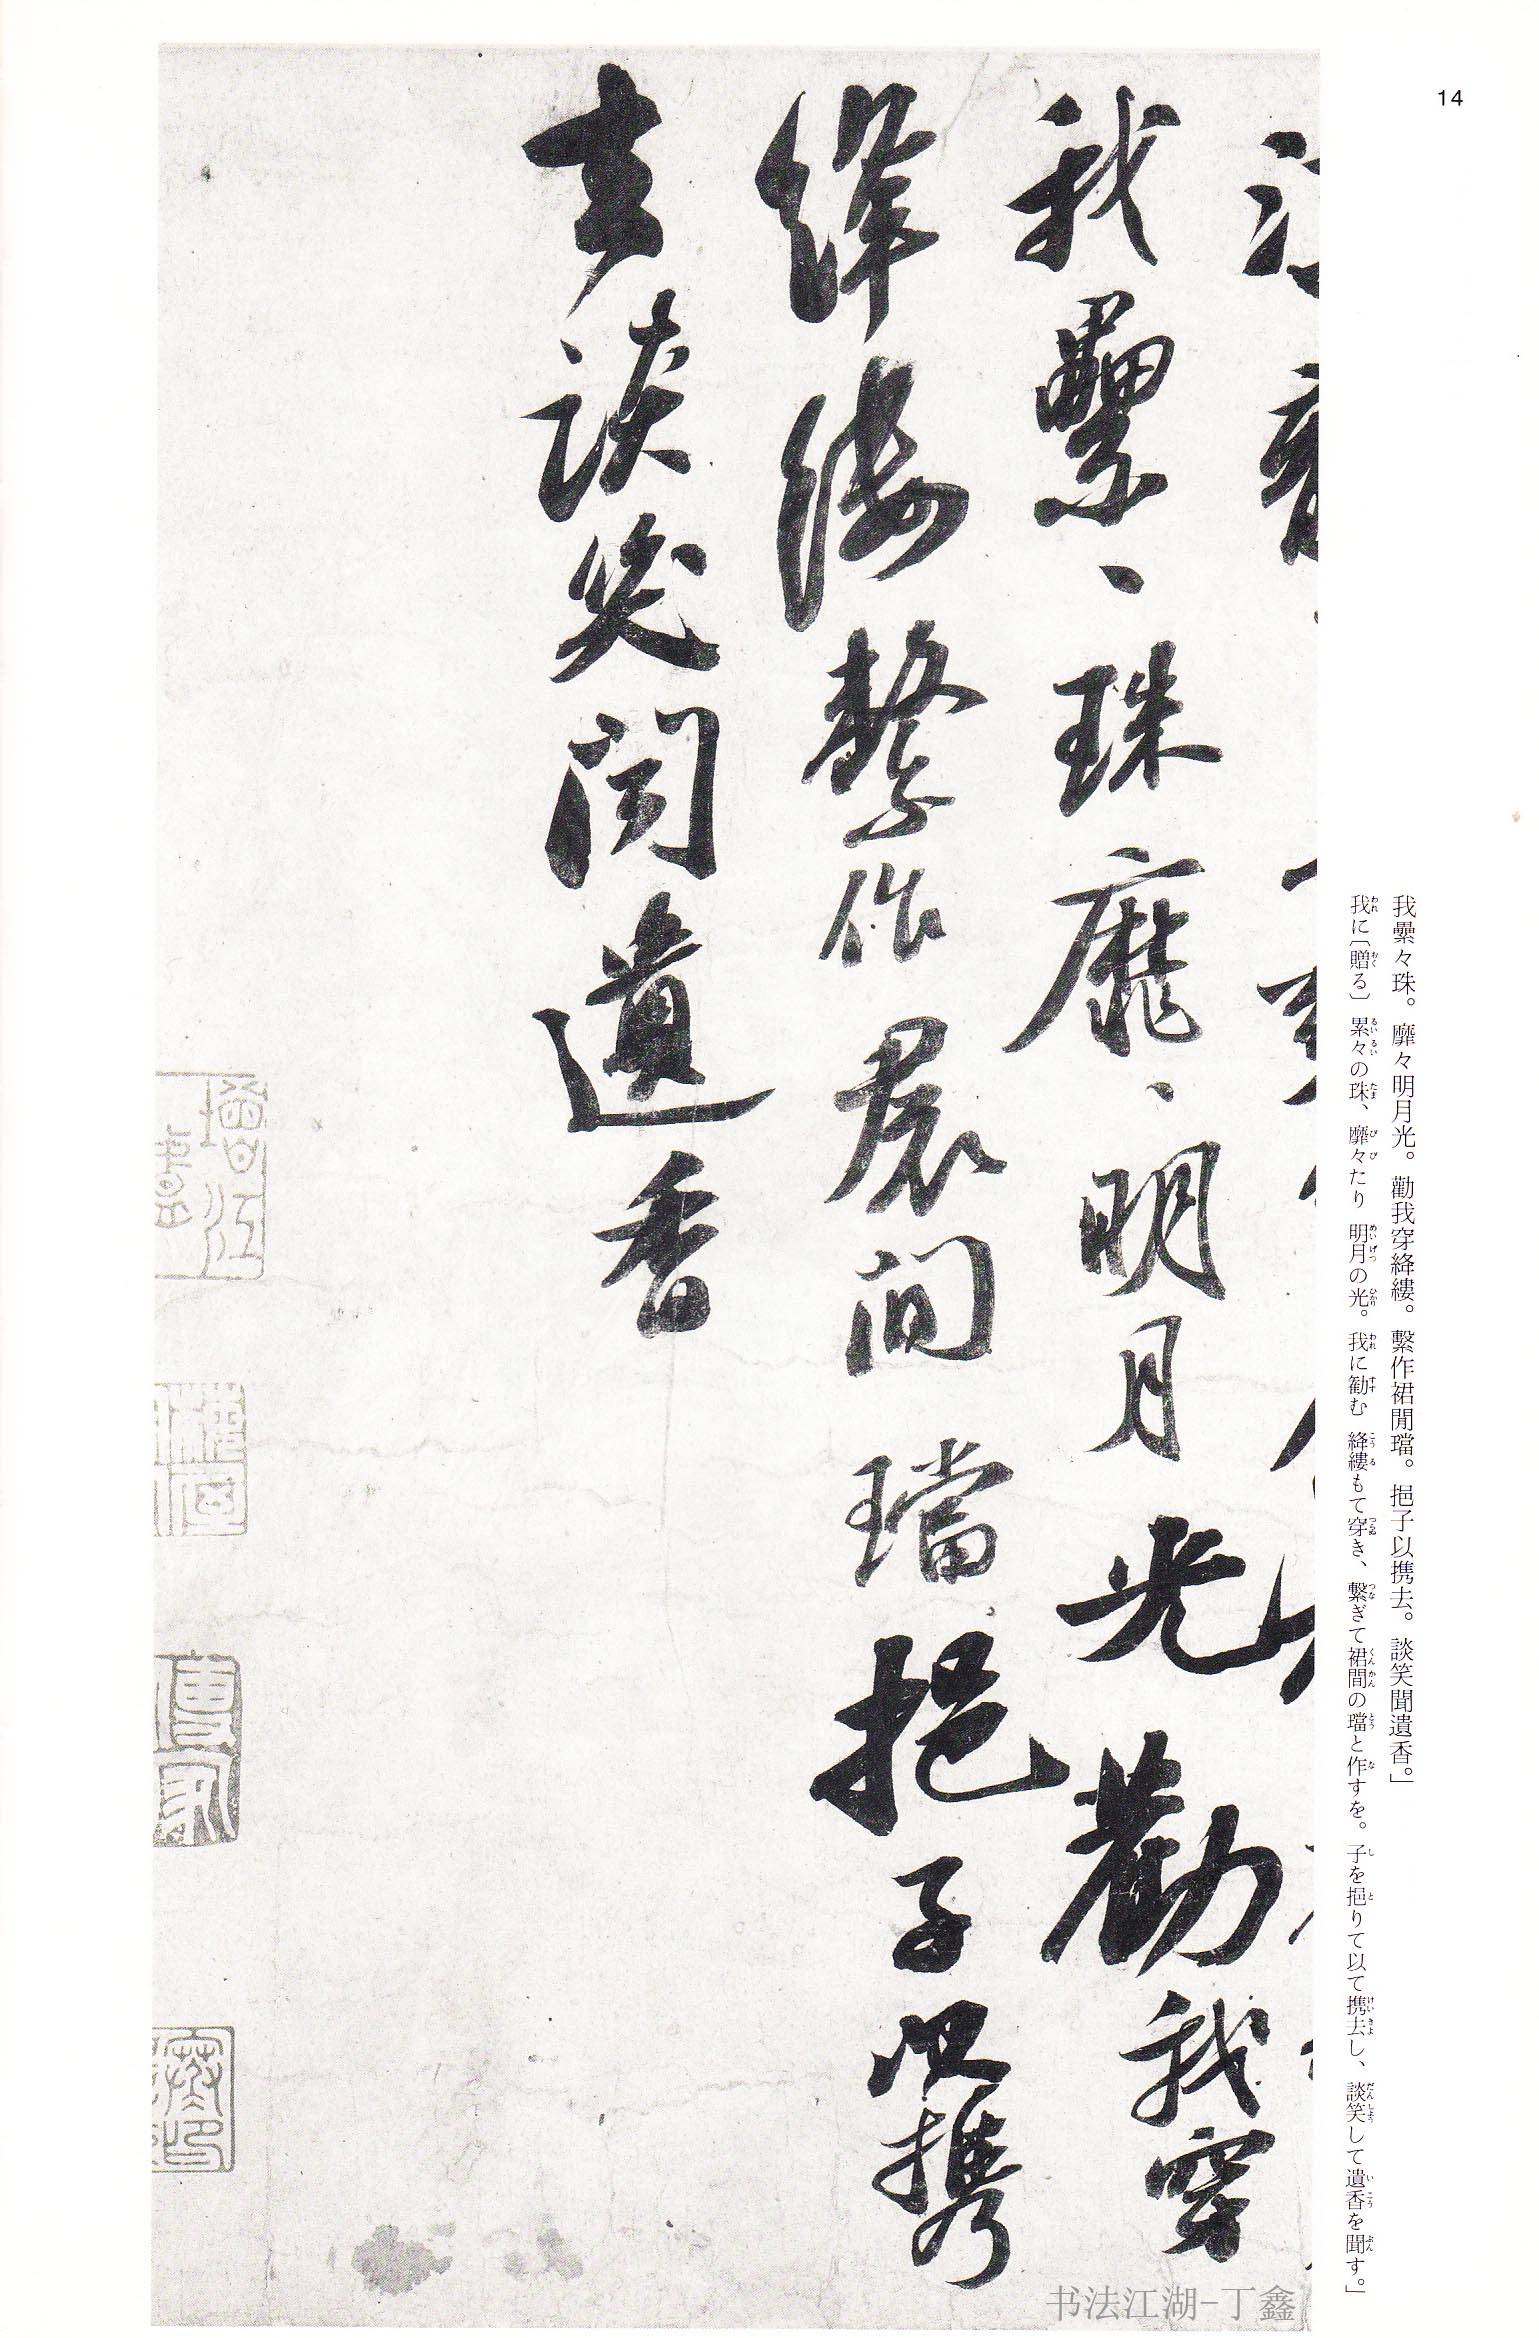 14
我纍〻珠靡〻明月光勸我穿
絳縷繫作裙間璫挹子以携
去談笑聞遺香
我纍々珠。靡々明月光。勸我穿絳縷。繫作裙閒璫。挹子以携去。談笑聞遺香。」
我に〔贈る〕累々の珠、靡々たり 明月の光。我に勧む 絳縷もて穿き、繋ぎて裙間の璫と作すを。子を挹りて以て携去し、談笑して遺香を聞す。」
书法江湖-丁鑫